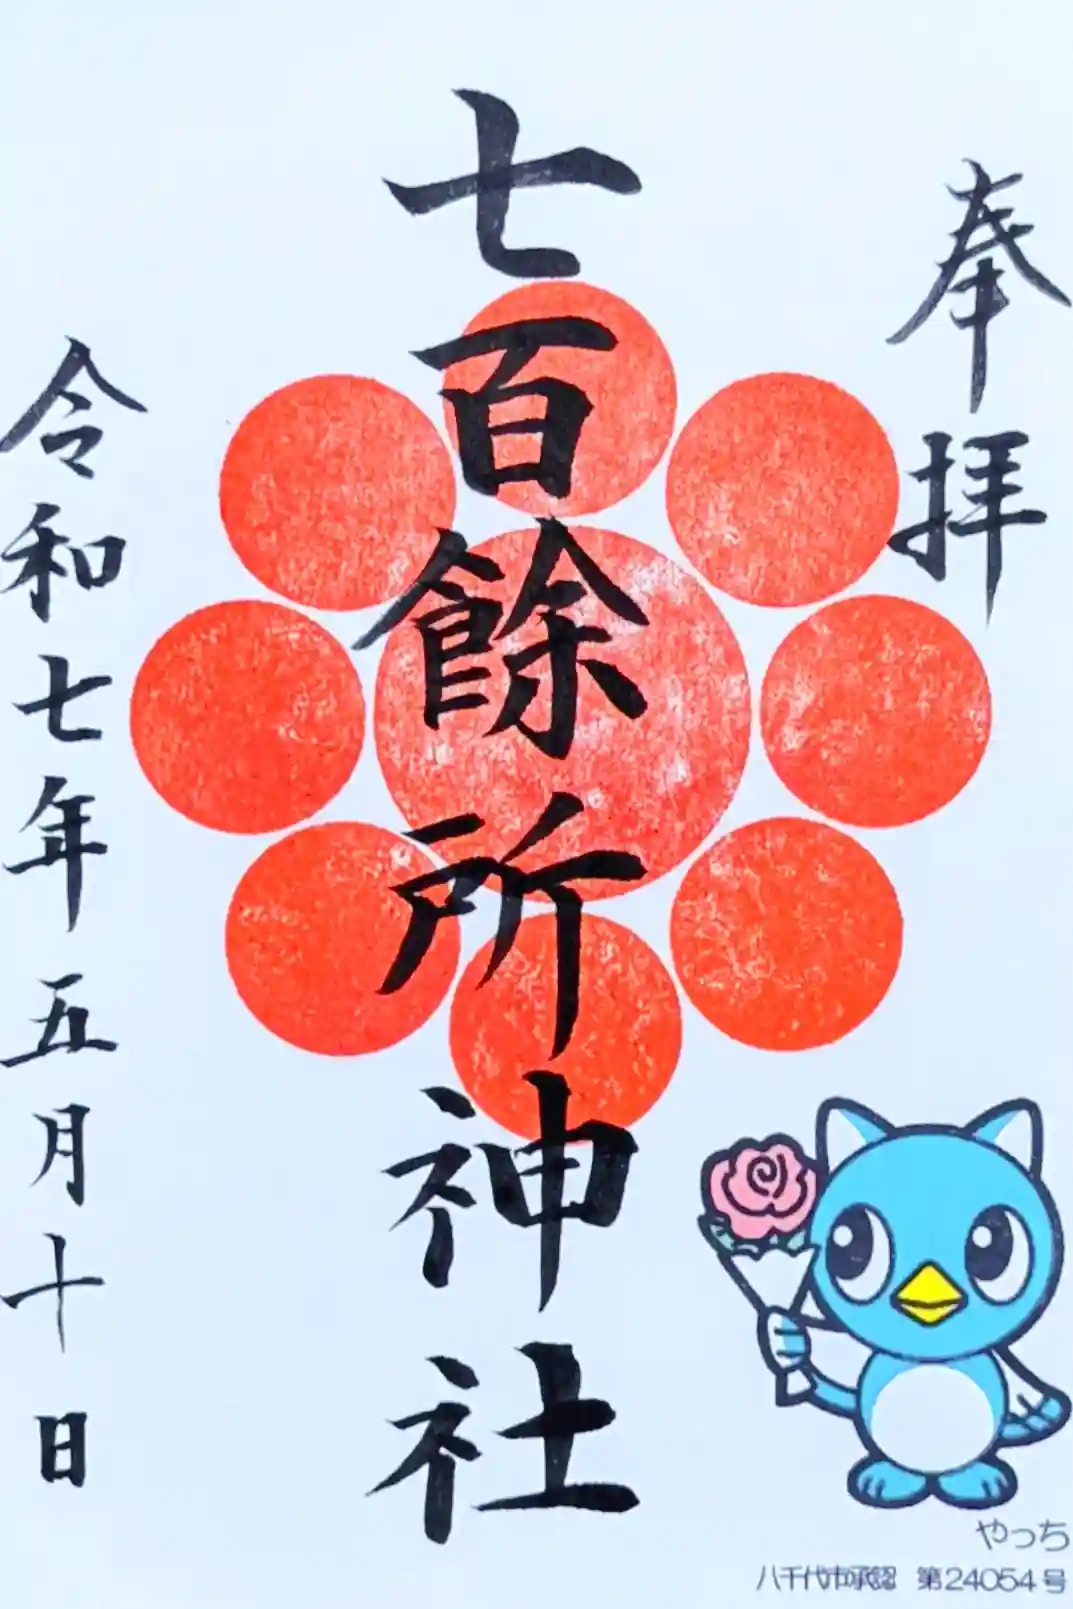 奉拝
七百餘所神社
令和七年五月十日
やっち
八千代市承認 第24054号